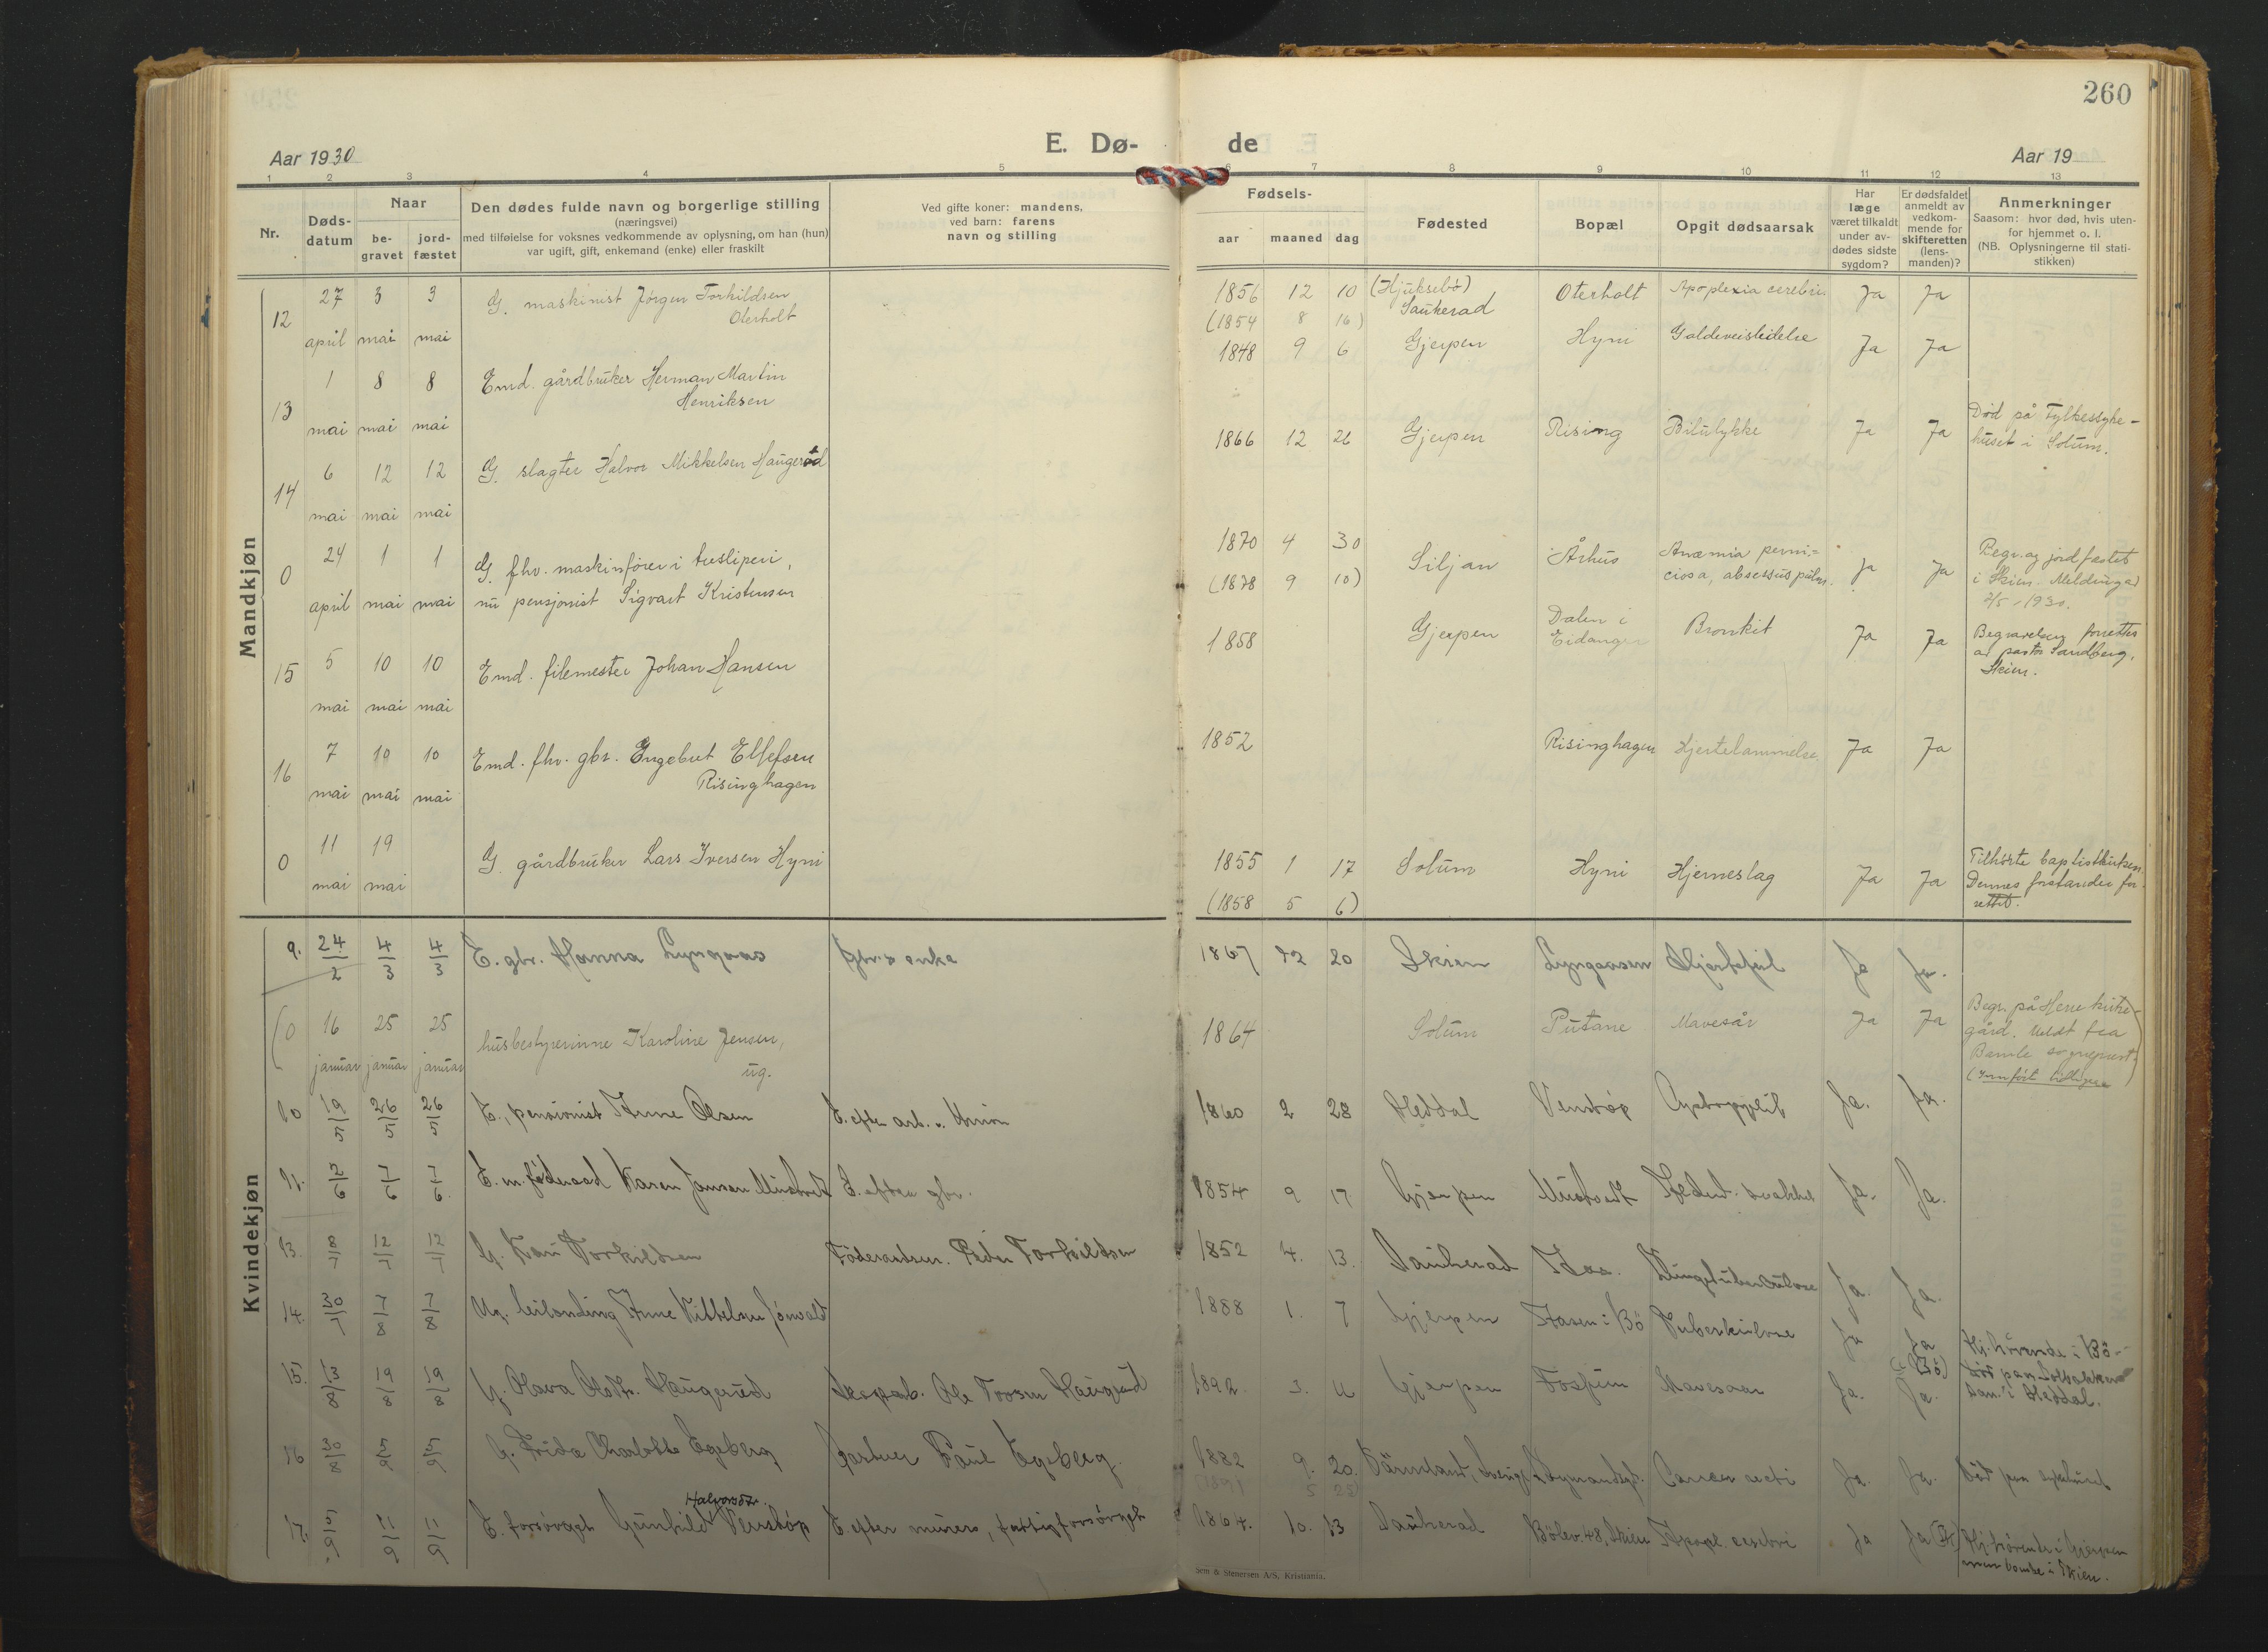 260
E. Dø-de
Aar 1930
Aar 19
1 2 3 4 5 6 7 8 9 10 11 12 13
Nr.
Døds-datum
Naar
be-gravet
jord-fæstet
Den dødes fulde navn og borgerlige stilling
(næringsvei)
med tilføielse for voksnes vedkommende av oplysning, om han (hun)
var ugift, gift, enkemand (enke) eller fraskilt
Ved gifte koner: mandens,
ved barn: farens
navn og stilling
Fødsels-
aar maaned dag
Fødested
Bopæl
Opgit dødsaarsak
Har
læge
været tilkaldt
under av-
dødes sidste
sygdom?
Er dødsfaldet
anmeldt av
vedkom-
mende for
skifteretten
(lens-
manden)?
Anmerkninger
Saasom: hvor død, hvis uten-
for hjemmet o. l.
(NB. Oplysningerne til stati-
stikken)
Mandkjøn
12 27 april 3 mai 3 mai G. maskinist Jørgen Torkildsen
Oterholt
1856 12 10 (Hjuksebø) Sauherad Oterholt Apoplexia cerebri. Ja Ja
(1854 8 16)
13 1 mai 8 mai 8 mai Emd. gårdbruker Herman Martin
Henriksen
1848 9 6 Gjerpen Hyni Galdeveislidelse Ja Ja
14 6 mai 12 mai 12 mai G. slagter Halvor Mikkelsen Haugerød
1866 12 26 Gjerpen Rising Bilulykke Ja Ja Død på Fylkessyke-
huset i Solum.
0 24 april 1 mai 1 mai G. fhv. maskinfører i tresliperi,
nu pensjonist Sigvart Kristensen
1870 4 30 Siljan Århus Anæmia perni-
ciosa, absessus pulm. Ja Ja Begr. og jordfæstet
i Skien. Melding ad
2/5 - 1930.
(1878 9 10)
15 5 mai 10 mai 10 mai Emd. filemester Johan Hansen
1858 Gjerpen Dalen i
Eidanger Bronkit Ja Ja Begravelsen forrettet
av pastor Sandberg,
Skien.
16 7 mai 10 mai 10 mai Emd. fhv. gbr. Engebret Ellefsen
Risinghagen
1852 Risinghagen Hjertelammelse Ja Ja
0 11 mai 19 mai G. gårdbruker Lars Iversen Hyni
1855 1 17 Solum Hyni Hjerneslag Ja Ja Tilhørte baptistkirken.
Dennes forstander for-
rettet.
(1858 5 6)
Kvindekjøn
9. 24/2 4/3 4/3 E. gbr. Hanna Lyngaas Gbr.s enke
1867 12 20 Skien Lyngaasen Hjertefeil Ja Ja.
(0 16 januar 25 januar 25 januar husbestyrerinne Karoline Jensen,
ug.
1864 Solum Putane Mavesår Ja Ja Begr. på Herre kirke-
gård. Meldt fra
Bamle sogneprest.
(Innført
10 19/5 26/5 26/5 E., pensionist Anne Olsen E. efter arb. v. Union
1860 2 28 Heddal Venstøp Ja. Ja.
11. 2/6 7/6 7/6 E. m. føderaad Karen Jonsen Mustvedt E. efter gbr.
1854 9 17 Gjerpen Mustvedt Ja. Ja.
13. 8/7 12/7 12/7 G. Kari Torkildsen Føderaadsm. Peder Torkildsen
1852 4. 13. Sauherad Lungetuberkulose Ja. Ja.
14. 30/7 7/8 7/8 Ug. Anne Kittelsen
1888 1. 7 Gjerpen i Bø Tuberkulose Ja Ja
(i Bø) Hj.hørende i Bø -
15. 13/8 19/8 19/8 G. Olava Olsdtr. Haugerud Ole Haugerud
1892. 3. 11 Gjerpen Fossum Mavesaar Ja. Ja. Død paa
san. i Heddal.
16 30/8 5/9 5/9 G. Frida Charlotte Egeberg Gartner Paul Egeberg.
1882 9. 20. Värmland, Sverige Cancer recti Ja. Ja. Død paa sykehuset
(1891 5 25)
17. 5/9 11/9 11/9 E. forsørget Gunhild Halvorsdtr. Venstøp E. efter murer, fattigforsørget
1864. 10. 13 Sauherad Bølev. 48, Skien Apopl. cerebri Ja Ja Hj.hørende i Gjerpen
men boende i Skien.
hem & Stenersen A/S, Kristiania.